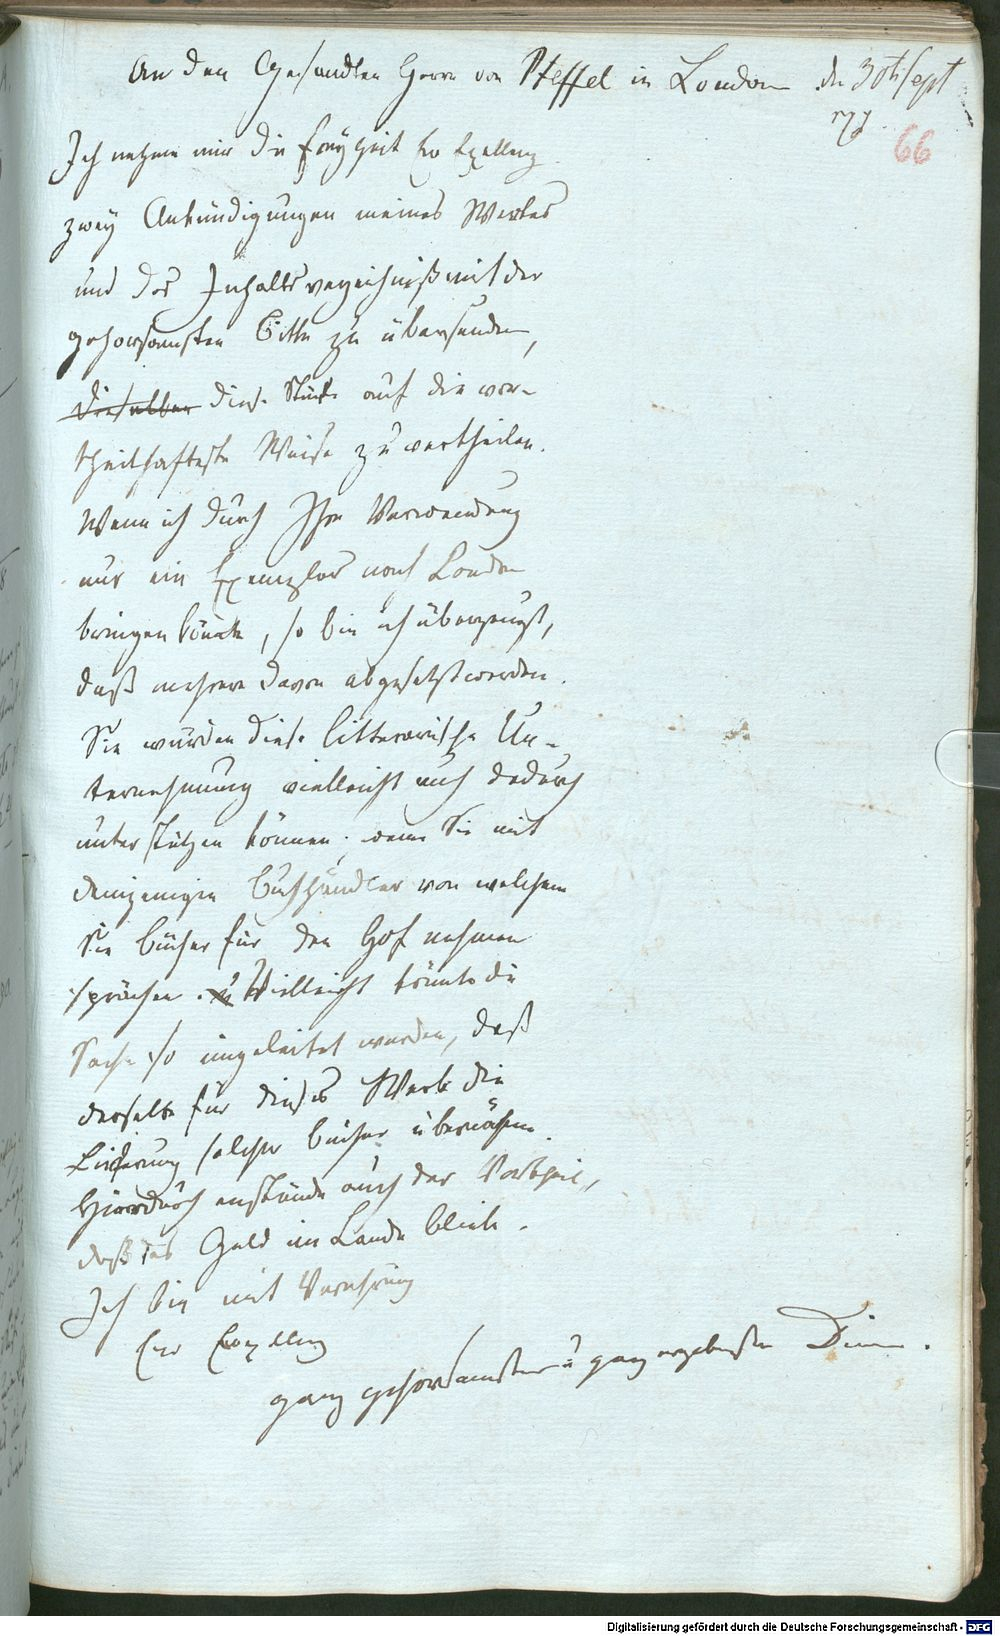 An den Gesandten Herrn von Pfeffel in London den 30t Sept
66
Ich nehme mir die Freyheit Ew Exzellenz
zwey Ankündigungen meines Werkes
und das Inhaltsverzeichniß mit der
gehorsamsten Bitte zu übersenden,
dieselben diese Stücke auf die vor-
theilhafteste Weise zu vertheilen.
Wenn ich durch Ihre Verwendung
nur ein Exemplar nach London
bringen könnte, so bin ich überzeugt,
daß mehrere davon abgesetzt werden.
Sie würden diese litterarische Un-
ternehmung vielleicht auch dadurch
unterstützen können, wenn Sie mit
demjenigen Buchhändler von welchem
Sie Bücher für den Hof nehmen
sprächen. Vielleicht könnte die
Sache so eingeleitet werden, daß
derselbe für dieses Werk die
Lieferung solcher Bücher übernähme.
Hierdurch enstünde auch der Vortheil,
daß das Geld im Lande bliebe.
Ich bin mit Verehrung
Euer Exzellenz
ganz gehorsamster u ganz ergebenster Diener.
Digitalisierung gefördert durch die Deutsche Forschungsgemeinschaft - DFG